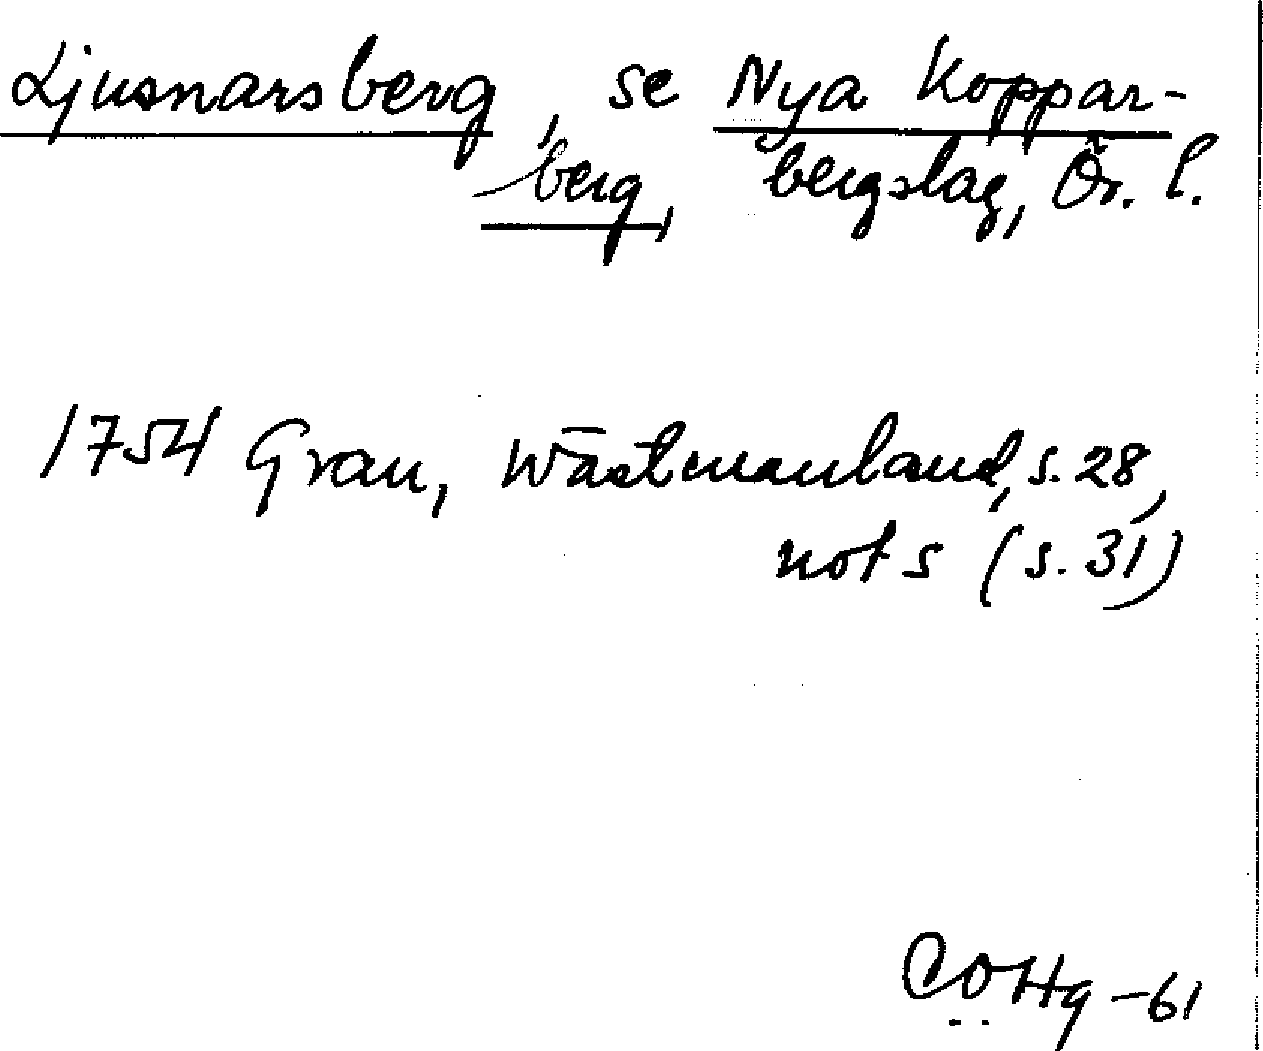 Ljusnarsberg, se Nya Koppar-
-berg, bergslag, Ör. l.
1754 Grau, Wästmanland, s. 28,
not s (s. 31)
COHg -61